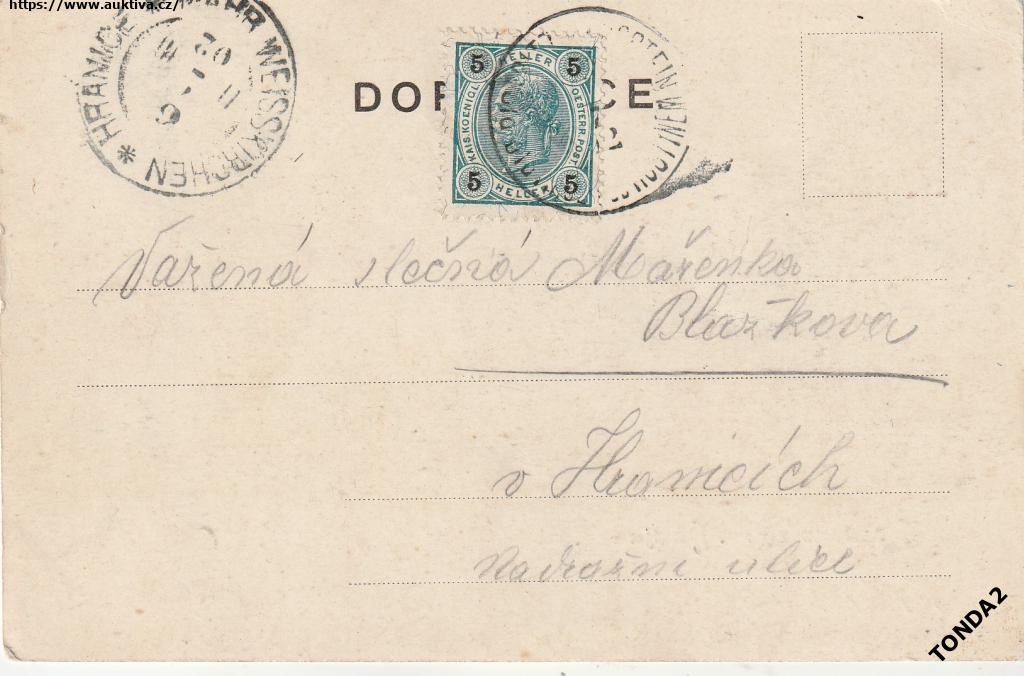 https://www.auktiva.cz/
HRANICE * MÄHR. WEISSKIRCHEN *
DOP CE
5 HELLER 5
KAIS. KOENIGL. OESTERR. POST
5 HELLER 5
Vařená slečna Mařenka
Blažkova
v Hranicích
Nadražní ulice
TONDA2